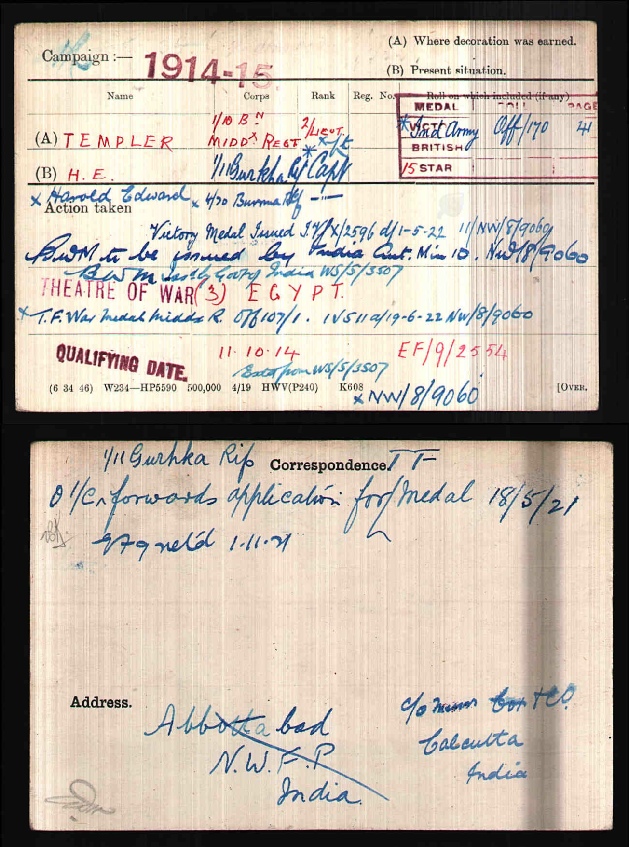 Campaign :— 1914-15
(A) Where decoration was earned.
(B) Present situation.
Name Corps Rank Reg. No. Roll on which included (if any)
MEDAL ROLL PAGE
1/10 Bn 2/Lieut
(A) TEMPLER MIDDx REGT * Ind Army Off/170 41
BRITISH
(B) H. E. 1/11 Gurkha Rif Capt
15 STAR
x Harold Edward x 4/70 Burma Rif —"—
Action taken
Victory Medal Issued I.V/X/2596 d/1-5-22 11/NW/8/9060
BWM to be issued by India Aut. Min 10. NW/8/9060
BWM Iss by Govt of India WS/5/3507
THEATRE OF WAR (3) EGYPT.
x T.F. War Medal Middx R. Off 107/1. IV511d/19-6-22 NW/8/9060
QUALIFYING DATE. 11.10.14 EF/9/2554
from WS/5/3507
(6 34 46) W234—HP5590 500,000 4/19 HWV(P240) K608 [OVER.
x NW/8/9060
1/11 Gurhka Rif Correspondence.
O i/c forwards application for Medal 18/5/21
1.11.21
Address.
Abbottabad
N.W.F.P
India.
c/o Cox & Co.
Calcutta
India